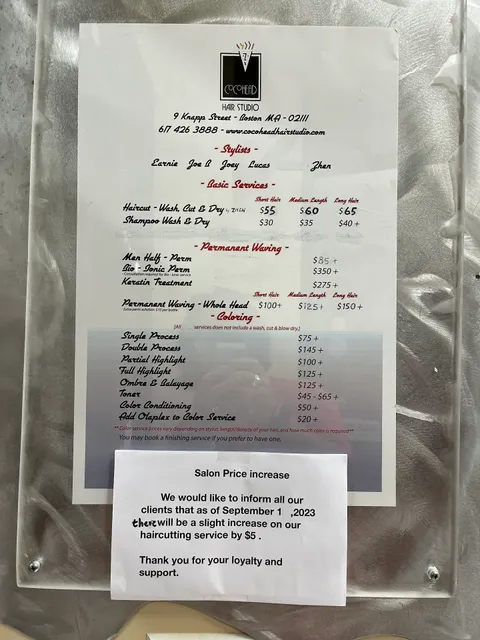 COCOHEAD
HAIR STUDIO
9 Knapp Street - Boston MA - 02111
617 426 3888 - www.cocoheadhairstudio.com
- Stylists -
Earnie Joe B Joey Lucas Zhen
- Basic Services -
Short Hair Medium Length Long Hair
Haircut - Wash, Cut & Dry $55 $60 $65
Shampoo Wash & Dry $30 $35 $40 +
- Permanent Waving -
Men Half - Perm $85 +
Bio - Ionic Perm $350 +
Keratin Treatment $275 +
Short Hair Medium Length Long Hair
Permanent Waving - Whole Head $100+ $125+ $150 +
- Coloring -
[All services does not include a wash, cut & blow dry.]
Single Process $75 +
Double Process $145 +
Partial Highlight $100 +
Full Highlight $125 +
Ombre & Balayage $125 +
Toner $45 - $65 +
Color Conditioning $50 +
Add Olaplex to Color Service $20 +
** Color service prices vary depending on stylist, length/density of your hair, and how much color is required**
You may book a finishing service if you prefer to have one.
Salon Price increase
We would like to inform all our
clients that as of September 1 ,2023
there will be a slight increase on our
haircutting service by $5 .
Thank you for your loyalty and
support.